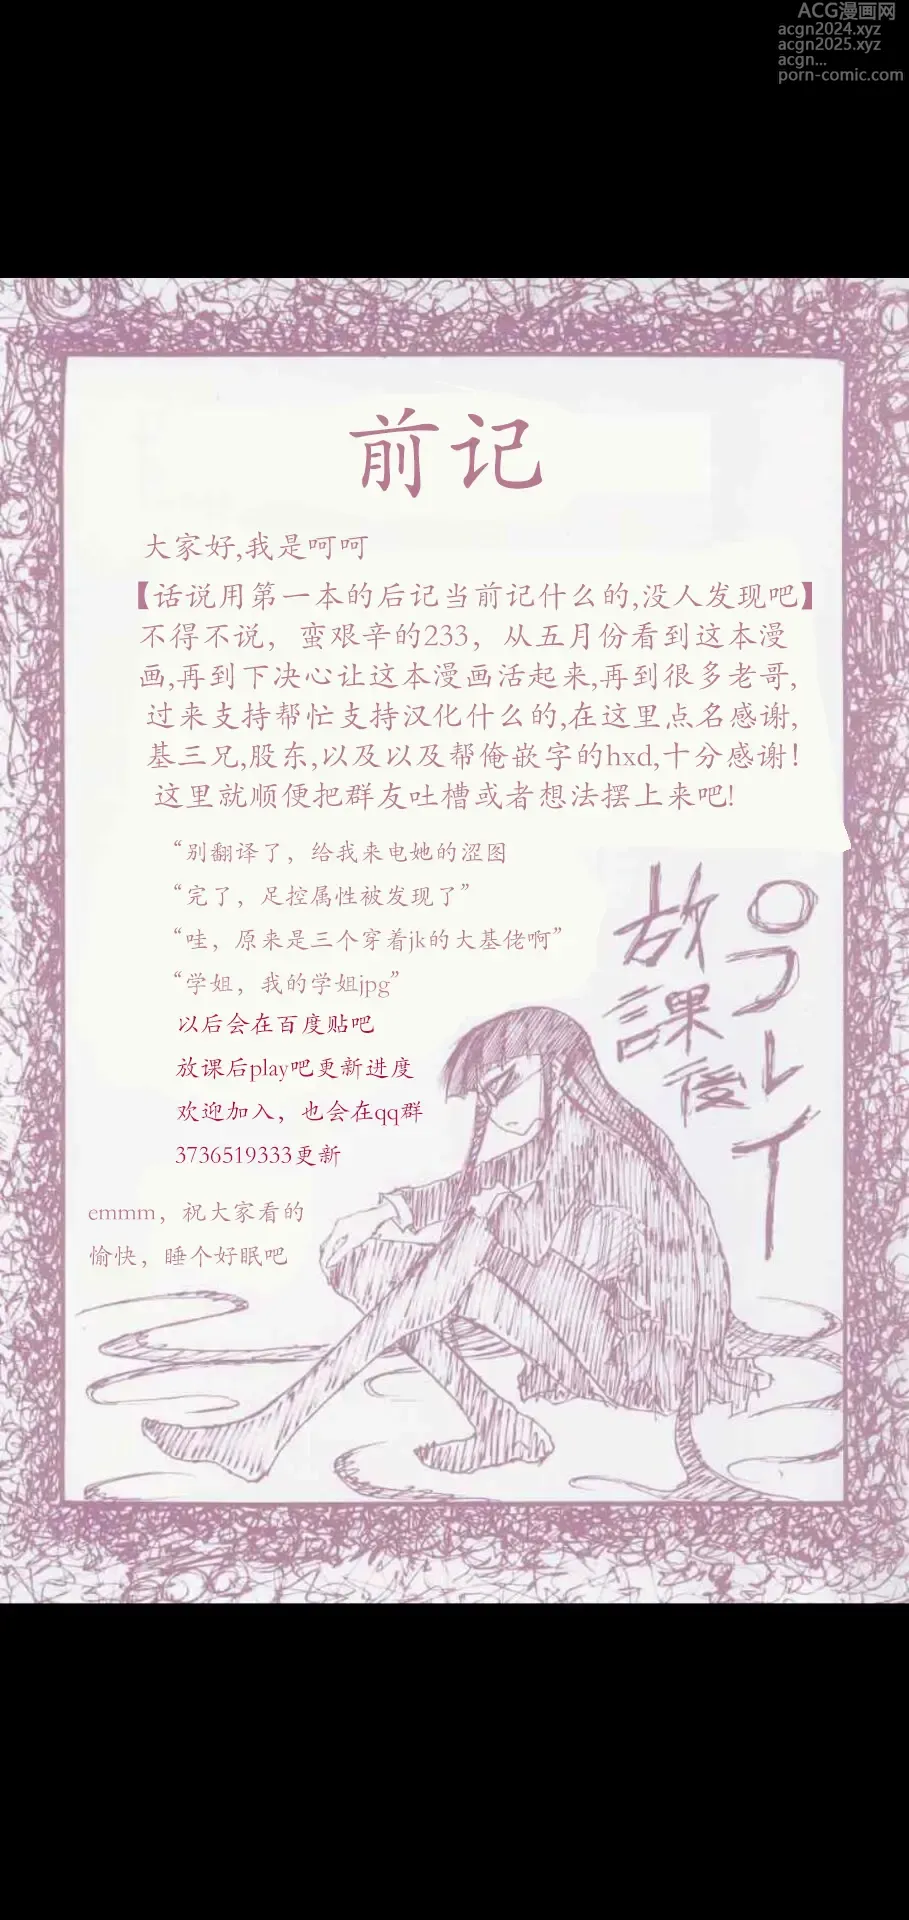 ACG漫画网
acgn2024.xyz
acgn2025.xyz
acgn...
porn-comic.com
前记
大家好,我是呵呵
【话说用第一本的后记当前记什么的,没人发现吧】
不得不说，蛮艰辛的233，从五月份看到这本漫
画,再到下决心让这本漫画活起来,再到很多老哥,
过来支持帮忙支持汉化什么的,在这里点名感谢,
基三兄,股东,以及以及帮俺嵌字的hxd,十分感谢!
这里就顺便把群友吐槽或者想法摆上来吧!
“别翻译了，给我来电她的涩图
“完了，足控属性被发现了”
“哇，原来是三个穿着jk的大基佬啊”
“学姐，我的学姐jpg”
以后会在百度贴吧
放课后play吧更新进度
欢迎加入，也会在qq群
3736519333更新
emmm，祝大家看的
愉快，睡个好眠吧
放課後
プレイ